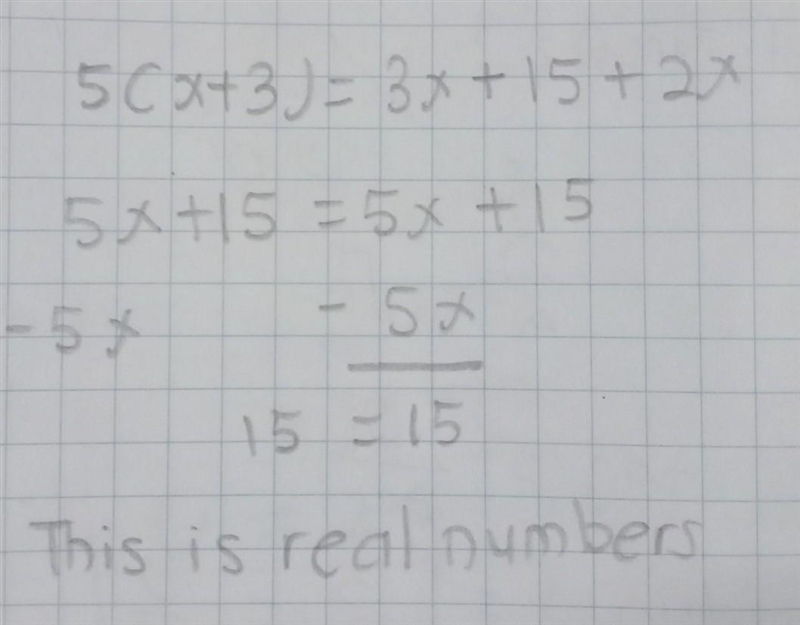 5(x+3) = 3x + 15 + 2x
5x + 15 = 5x + 15
- 5x - 5x
15 = 15
This is real numbers